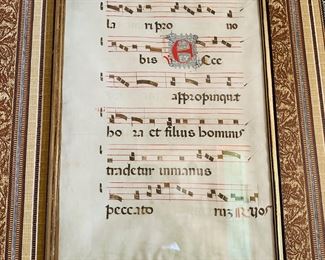 la ri pro no
bis ℣ Ecce
appropinquat
ho ra et filius hominis
tradetur in manus
peccato rum ℟ Vos